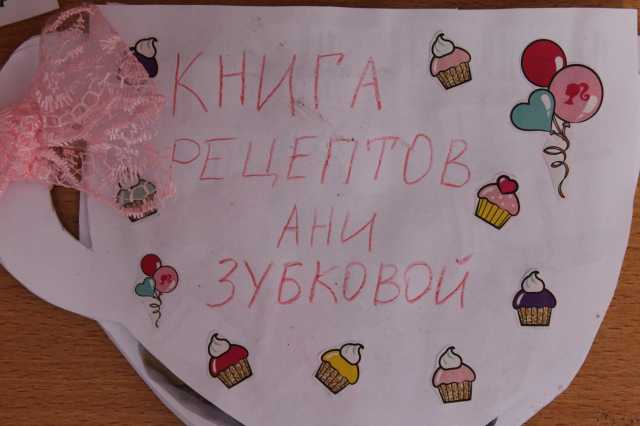 КНИГА
РЕЦЕПТОВ
АНИ
ЗУБКОВОЙ